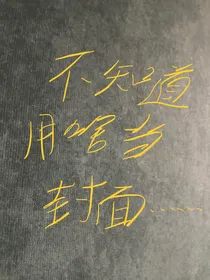 不知道
用啥当
封面……